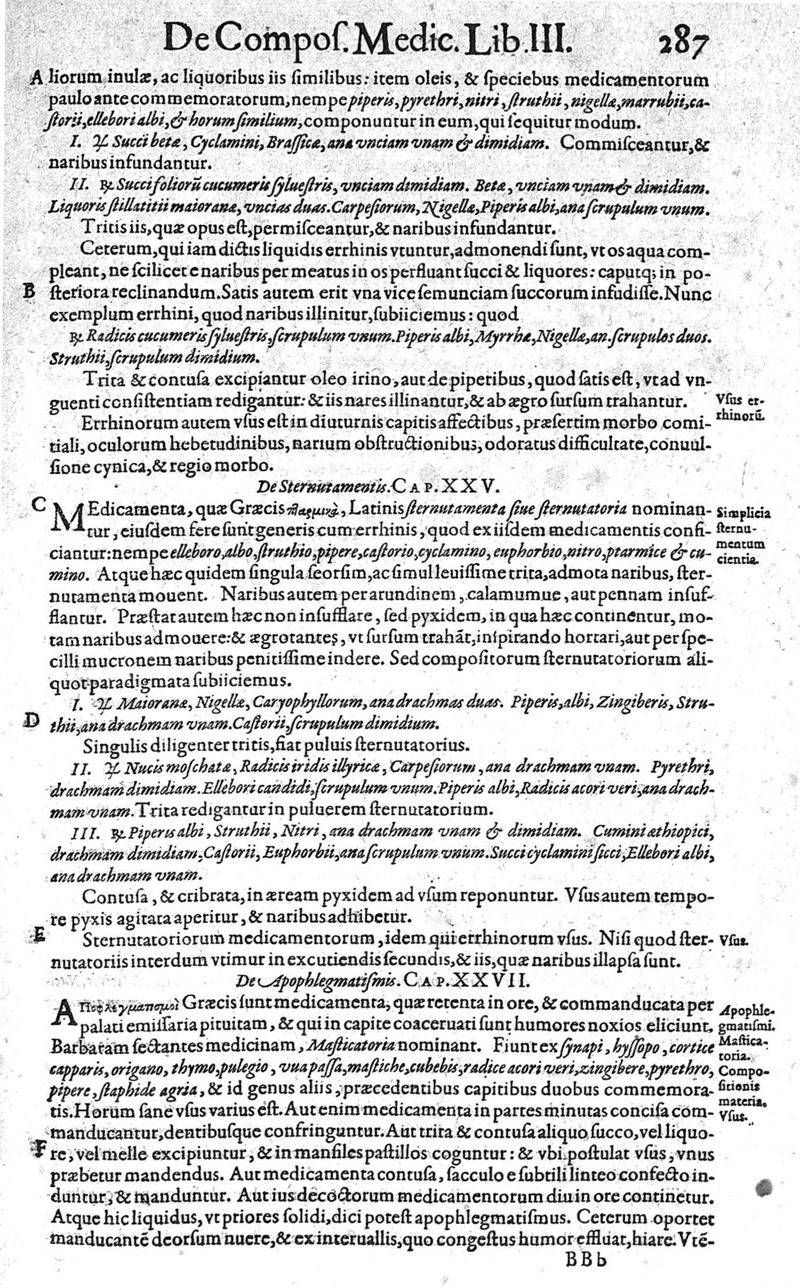 De Compos. Medic. Lib. III. 287
A liorum inulæ, ac liquoribus iis similibus: item oleis, & speciebus medicamentorum
paulo ante commemoratorum, nempe piperis, pyrethri, nitri, struthii, nigellæ, marrubii, ca-
storii, ellebori albi, & horum similium, componuntur in eum, qui sequitur modum.
I. ℞ Succi betæ, Cyclamini, Brassicæ, ana vnciam vnam & dimidiam. Commisceantur, &
naribus infundantur.
II. ℞ Succi foliorũ cucumeris syluestris, vnciam dimidiam. Betæ, vnciam vnam & dimidiam.
Liquoris stillatitii maioranæ, vncias duas. Carpesiorum, Nigellæ, Piperis albi, ana scrupulum vnum.
Tritis iis, quæ opus est, permisceantur, & naribus infundantur.
Ceterum, qui iam dictis liquidis errhinis vtuntur, admonendi sunt, vt os aqua com-
pleant, ne scilicet e naribus per meatus in os perfluant succi & liquores: caputq; in po-
B steriora reclinandum. Satis autem erit vna vice semunciam succorum infudisse. Nunc
exemplum errhini, quod naribus illinitur, subiiciemus: quod
℞ Radicis cucumeris syluestris, scrupulum vnum. Piperis albi, Myrrhæ, Nigellæ, an. scrupulos duos.
Struthii, scrupulum dimidium.
Trita & contusa excipiantur oleo irino, aut de piperibus, quod satis est, vt ad vn-
guenti consistentiam redigantur: & iis nares illinantur, & ab ægro sursum trahantur.
Vsus er-
rhinorũ.
Errhinorum autem vsus est in diuturnis capitis affectibus, præsertim morbo comi-
tiali, oculorum hebetudinibus, narium obstructionibus, odoratus difficultate, conuul-
sione cynica, & regio morbo.
De Sternutamentis. CAP. XXV.
C MEdicamenta, quæ Græcis πταρμικὰ, Latinis sternutamenta siue sternutatoria nominan-
tur, eiusdem fere sunt generis cum errhinis, quod ex iisdem medicamentis confi-
ciantur: nempe elleboro, albo, struthio, pipere, castorio, cyclamino, euphorbio, nitro, ptarmice & cu-
mino. Atque hæc quidem singula seorsim, ac simul leuissime trita, admota naribus, ster-
Simplicia
sternu-
mentum
cientia.
nutamenta mouent. Naribus autem per arundinem, calamumue, aut pennam insuf-
flantur. Præstat autem hæc non insufflare, sed pyxidem, in qua hæc continentur, mo-
tam naribus admouere: & ægrotantes, vt sursum trahãt, inspirando hortari, aut per spe-
cilli mucronem naribus penitissime indere. Sed compositorum sternutatoriorum ali-
quot paradigmata subiiciemus.
I. ℞ Maioranæ, Nigellæ, Caryophyllorum, ana drachmas duas. Piperis, albi, Zingiberis, Stru-
D thii, ana drachmam vnam. Castorii, scrupulum dimidium.
Singulis diligenter tritis, fiat puluis sternutatorius.
II. ℞ Nucis moschatæ, Radicis iridis illyricæ, Carpesiorum, ana drachmam vnam. Pyrethri,
drachmam dimidiam. Ellebori candidi, scrupulum vnum. Piperis albi, Radicis acori veri, ana drach-
mam vnam. Trita redigantur in puluerem sternutatorium.
III. ℞ Piperis albi, Struthii, Nitri, ana drachmam vnam & dimidiam. Cumini æthiopici,
drachmam dimidiam, Castorii, Euphorbii, ana scrupulum vnum. Succi cyclamini sicci, Ellebori albi,
ana drachmam vnam.
Contusa, & cribrata, in æream pyxidem ad vsum reponuntur. Vsus autem tempo-
re pyxis agitata aperitur, & naribus adhibetur.
E Sternutatoriorum medicamentorum, idem qui errhinorum vsus. Nisi quod ster- Vsus.
nutatoriis interdum vtimur in excutiendis secundis, & iis, quæ naribus illapsa sunt.
De Apophlegmatismis. CAP. XXVII.
ΑΠοφλεγματισμοὶ Græcis sunt medicamenta, quæ retenta in ore, & commanducata per
palati emissaria pituitam, & qui in capite coaceruati sunt humores noxios eliciunt.
Barbaram sectantes medicinam, Masticatoria nominant. Fiunt ex synapi, hyssopo, cortice
capparis, origano, thymo, pulegio, vua passa, mastiche, cubebis, radice acori veri, zingibere, pyrethro,
pipere, staphide agria, & id genus aliis, præcedentibus capitibus duobus commemora-
tis. Horum sane vsus varius est. Aut enim medicamenta in partes minutas concisa com-
Apophle-
gmatismi.
Mastica-
toria.
Compo-
sitionis
materia.
Vsus.
manducantur, dentibusque confringuntur. Aut trita & contusa aliquo succo, vel liquo-
F re, vel melle excipiuntur, & in mansiles pastillos coguntur: & vbi postulat vsus, vnus
præbetur mandendus. Aut medicamenta contusa, sacculo e subtili linteo confecto in-
duntur, & manduntur. Aut ius decoctorum medicamentorum diu in ore continetur.
Atque hic liquidus, vt priores solidi, dici potest apophlegmatismus. Ceterum oportet
manducantẽ deorsum nuere, & ex interuallis, quo congestus humor effluat, hiare. Vtẽ-
BBb